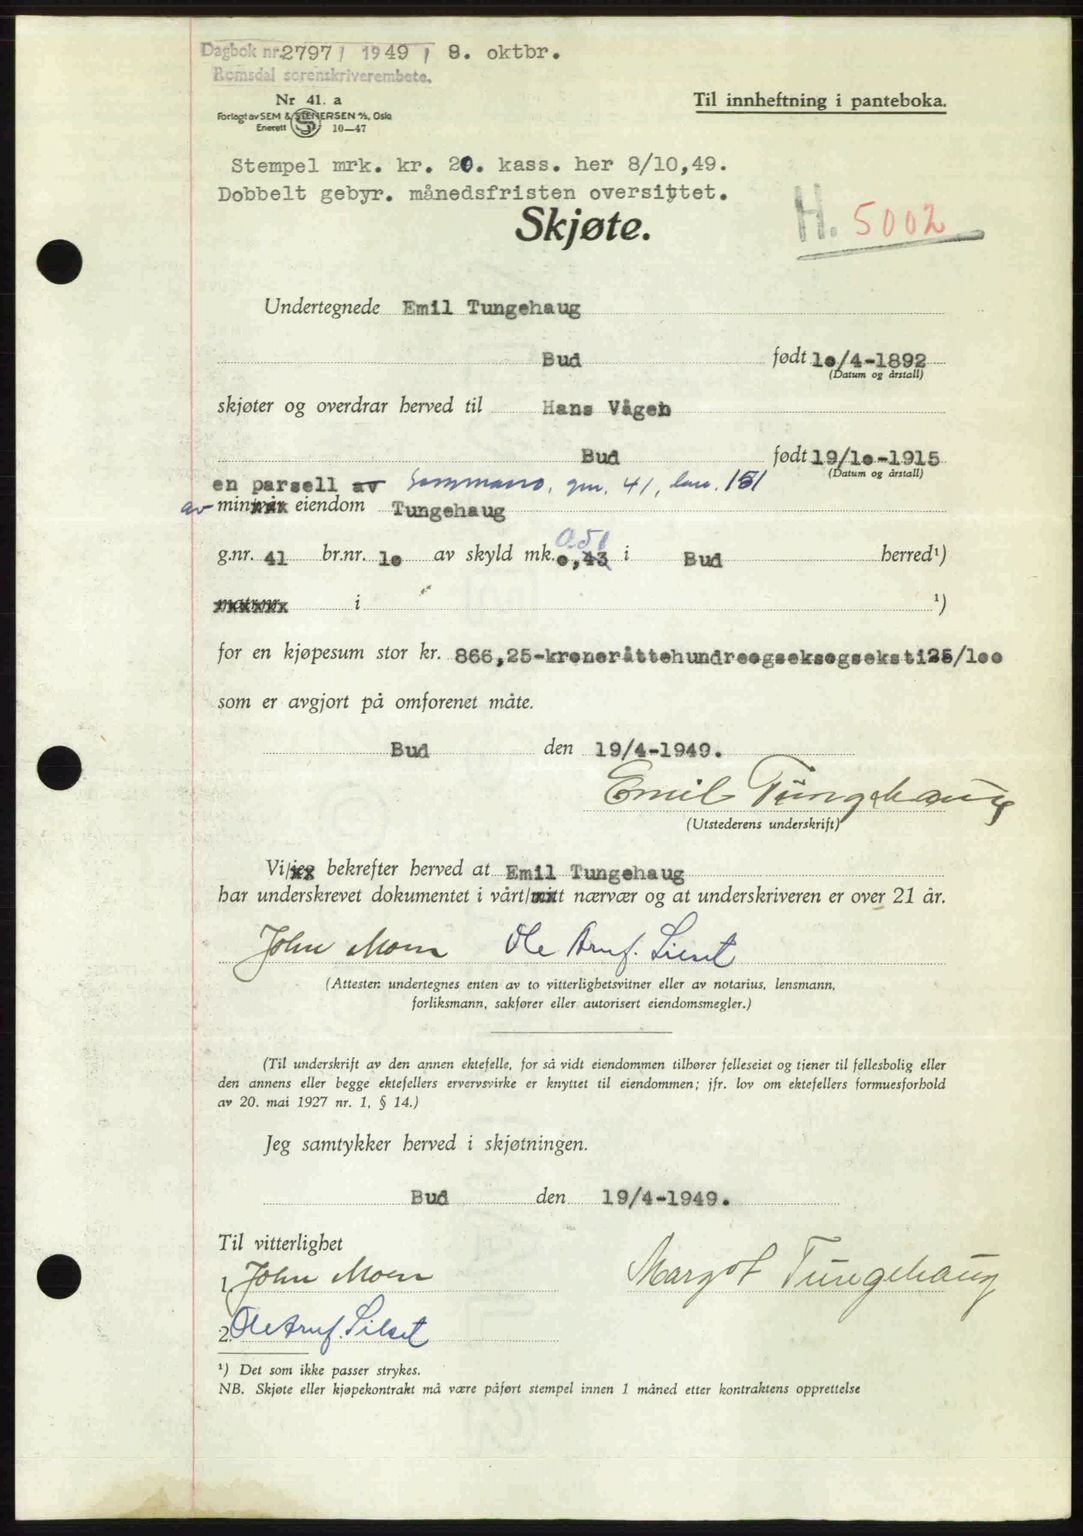 Dagbok nr. 2797 / 1949 / 8. oktbr.
Romsdal sorenskriverembete.
Nr 41. a
Forlagt av SEM & STENERSEN A/S, Oslo
Enerett 10—47
Til innheftning i panteboka.
Stempel mrk. kr. 20. kass. her 8/10,49.
Dobbelt gebyr. månedsfristen oversittet.
Skjøte.
H. 5002
Undertegnede Emil Tungehaug
Bud født 1o/4-1892
(Datum og årstall)
skjøter og overdrar herved til Hans Vågen
Bud født 19/1o-1915
(Datum og årstall)
en parsell av gnr. 41, bnr. 151
av min eiendom Tungehaug
0.50
g.nr. 41 br.nr. 1o av skyld mk. o,43 i Bud herred¹)
i ¹)
for en kjøpesum stor kr. 866,25-kroneråttehundreogseksogseksti25/1oo
som er avgjort på omforenet måte.
Bud den 19/4-1949.
Emil Tungehaug
(Utstederens underskrift)
Vi/jeg bekrefter herved at Emil Tungehaug
har underskrevet dokumentet i vårt/mitt nærvær og at underskriveren er over 21 år.
John Moen Ole Arnf. Silset
(Attesten undertegnes enten av to vitterlighetsvitner eller av notarius, lensmann,
forliksmann, sakfører eller autorisert eiendomsmegler.)
(Til underskrift av den annen ektefelle, for så vidt eiendommen tilhører felleseiet og tjener til fellesbolig eller
den annens eller begge ektefellers ervervsvirke er knyttet til eiendommen; jfr. lov om ektefellers formuesforhold
av 20. mai 1927 nr. 1, § 14.)
Jeg samtykker herved i skjøtningen.
Bud den 19/4-1949.
Til vitterlighet
1. John Moen Margot Tungehaug
2. Ole Arnf. Silset
¹) Det som ikke passer strykes.
NB. Skjøte eller kjøpekontrakt må være påført stempel innen 1 måned etter kontraktens opprettelse